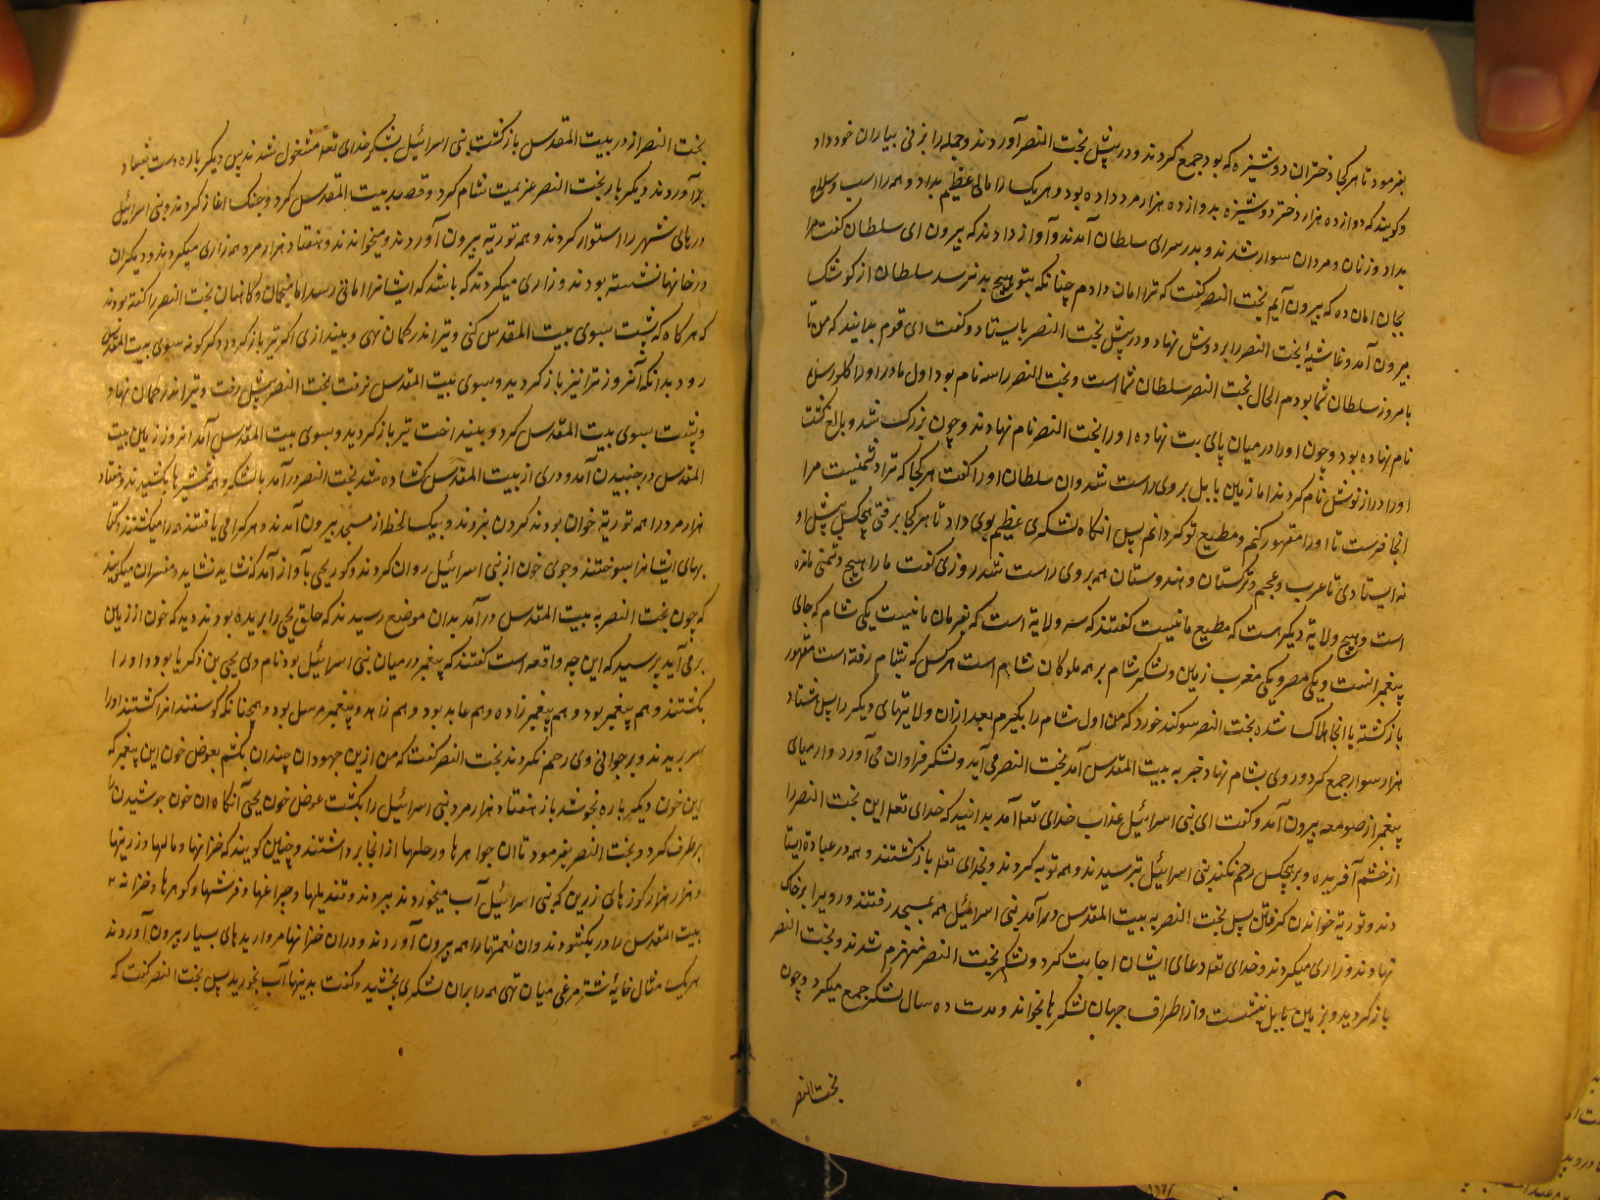 بفرمود تا هر کجا دختران دوشیزه که بود جمع کردند و در پیش بخت النصر آوردند و جمله را بزنی بیاران خود داد
و کویند که دوازده هزار دختر دوشیزه بدوازده هزار مرد داده بود و هر یک را مالی عظیم بداد و همه را اسب و سلاح
بداد و زنان و مردان سوار شدند و بدر سرای سلطان آمدند و آواز دادند که بیرون ای سلطان کفت مرا
بجان امان ده که بیرون آیم بخت النصر کفت که ترا امان دادم چنانکه بتو هیچ بد نرسد سلطان از کوشک
بیرون آمد و غاشیهٔ بخت النصر را بر دوش نهاد و در پیش بخت النصر بایستاد و کفت ای قوم بدانید که من تا
بامروز سلطان شما بودم الحال بخت النصر سلطان شما است و بخت النصر را سه نام بود اول مادر او را
نام نهاده بود و چون او را در میان پای بت نهاده او را بخت النصر نام نهادند و چون بزرک شد و بالغ کشت
او را دراز نوش نام کردند اما زمین بابل بر وی راست شد وان سلطان او را کفت هر کجا که ترا دشمنیست مرا
انجا فرست تا او را مقهور کنم و مطیع تو کردانم پس انکاه لشکری عظیم بوی داد تا هر کجا برفتی هیچکس پیش او
نه ایستادی تا عرب و عجم و ترکستان و هندوستان همه بر وی راست شد روزی کفت ما را هیچ دشمنی مانده
است و هیچ ولایة دیکر هست که مطیع ما نیست کفتند که سه ولایة است که بفرمان ما نیست یکی شام که جای
پیغمبر انست و یکی مصر و یکی مغرب زمین و لشکر شام بر همه ملوکان شام است هر کس که بشام رفته است مقهور
باز کشته یا انجا هلاک شده بخت النصر سوکند خورد که من اول شام را بکیرم بعد ازان ولایتهای دیکر را پس هشتاد
هزار سوار جمع کرد و روی بشام نهاد خبر به بیت المقدس آمد بخت النصر می آید و لشکر فراوان می آورد و ارمیای
پیغمبر از صومعه بیرون آمد و کفت ای بنی اسرائیل عذاب خدای تعه آمد بدانید که خدای تعه این بخت النصر را
از خشم آفریده و بر هیچکس رحم نکند بنی اسرائیل بترسیدند و همه توبه کردند و بخدای تعه باز کشتند و همه در عبادة ایستا
دند و توریة خواندن کرفتن پس بخت النصر به بیت المقدس در آمد بنی اسرائیل همه بمسجد رفتند و رو بر خاک
نهادند و زاری میکردند و خدای تعه دعای ایشان اجابت کرد و لشکر بخت النصر منهزم شدند و بخت النصر
باز کردید و بزمین بابل بنشست و از اطراف جهان لشکرها بخواند و مدت ده سال لشکر جمع میکرد و چون
بخت النصر
بخت النصر از در بیت المقدس باز کشت بنی اسرائیل بشکر خدای تعه مشغول شدند پس دیکر باره دست بفساد
بر آوردند دیکر بار بخت النصر عزیمت شام کرد و قصد بیت المقدس کرد و جنک اغاز کردند و بنی اسرائیل
درهای شهر را استوار کردند و همه توریة بیرون آوردند و میخواندند و هفتاد هزار مرد همه زاری میکردند و دیکران
در خانها نشسته بودند و زاری میکردند که باشد که ایشانرا امانی رسد اما منجمان و کاهنان بخت النصر را کفته بودند
که هر کاه که پشت بسوی بیت المقدس کنی و تیر اندر کمان نهی و بیندازی اکر تیر باز کردد و کرکونه سوی بیت المقدس
رود بدانکه آنروز ترا نیز باز کردید و سوی بیت المقدس نرفت بخت النصر پیش رفت و تیر اندر کمان نهاد
و پشت بسوی بیت المقدس کرد و بینداخت تیر باز کردید و سوی بیت المقدس آمد انروز زمین بیت
المقدس در جنبیدن آمد و دری از بیت المقدس کشاده شد بخت النصر در آمد با لشکر و همه شمشیرها کشیدند و هفتاد
هزار مرد را همه توریة خوان بودند کردن بزدند و بیک لحظه از مسجد بیرون آمدند و هر که را می یافتند همه را میکشتند و کتا
بهای ایشانرا بسوختند و جوی خون از بنی اسرائیل روان کردند و کور یحیی بآواز آمد که نشاید نشاید و مفسران میکویند
که چون بخت النصر به بیت المقدس در آمد بدان موضع رسیدند که حلق یحیی را بریده بودند دید که خون از زمین
برمی آید پرسید که این چه واقعه است کفتند که پیغمبر در میان بنی اسرائیل بود نام وی یحیی بن زکریا بود و او را
بکشتند و هم پیغمبر بود و هم پیغمبر زاده و هم عابد بود و هم زاهد و پیغمبر مرسل بود و همچنانکه کوسفند انرا کشتند او را
سر بریدند و بر جوانی وی رحم نکردند بخت النصر کفت که من ازین جهودان چندان بکشم بعوض خون این پیغمبر که
این خون دیکر باره نجوشد باز هفتاد هزار مرد بنی اسرائیل را بکشت عوض خون یحیی آنکاه ان خون جوشیدن را
برطرف کرد و بخت النصر بفرمود تا ان جواهرها و رحلها از انجا برداشتند و چنین کویند که خزانها و مالها و زرینها
و هزار هزار کوزهای زرین که بنی اسرائیل آب میخوردند ببردند و قندیلها و چراغها و فرشها و کوهرها و خزانه
بیت المقدس را در بکشودند وان نعمتها را همه بیرون آوردند و دران خزانها مرواریدهای بسیار بیرون آوردند
هر یک مثال خایهٔ شتر مرغی میان تهی همه را بران لشکری بخشید و کفت بدینها آب بخورید پس بخت النصر کفت که